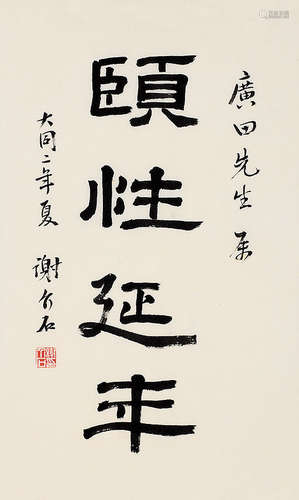 廣田先生 属
頤性延年
大同二年夏 謝介石